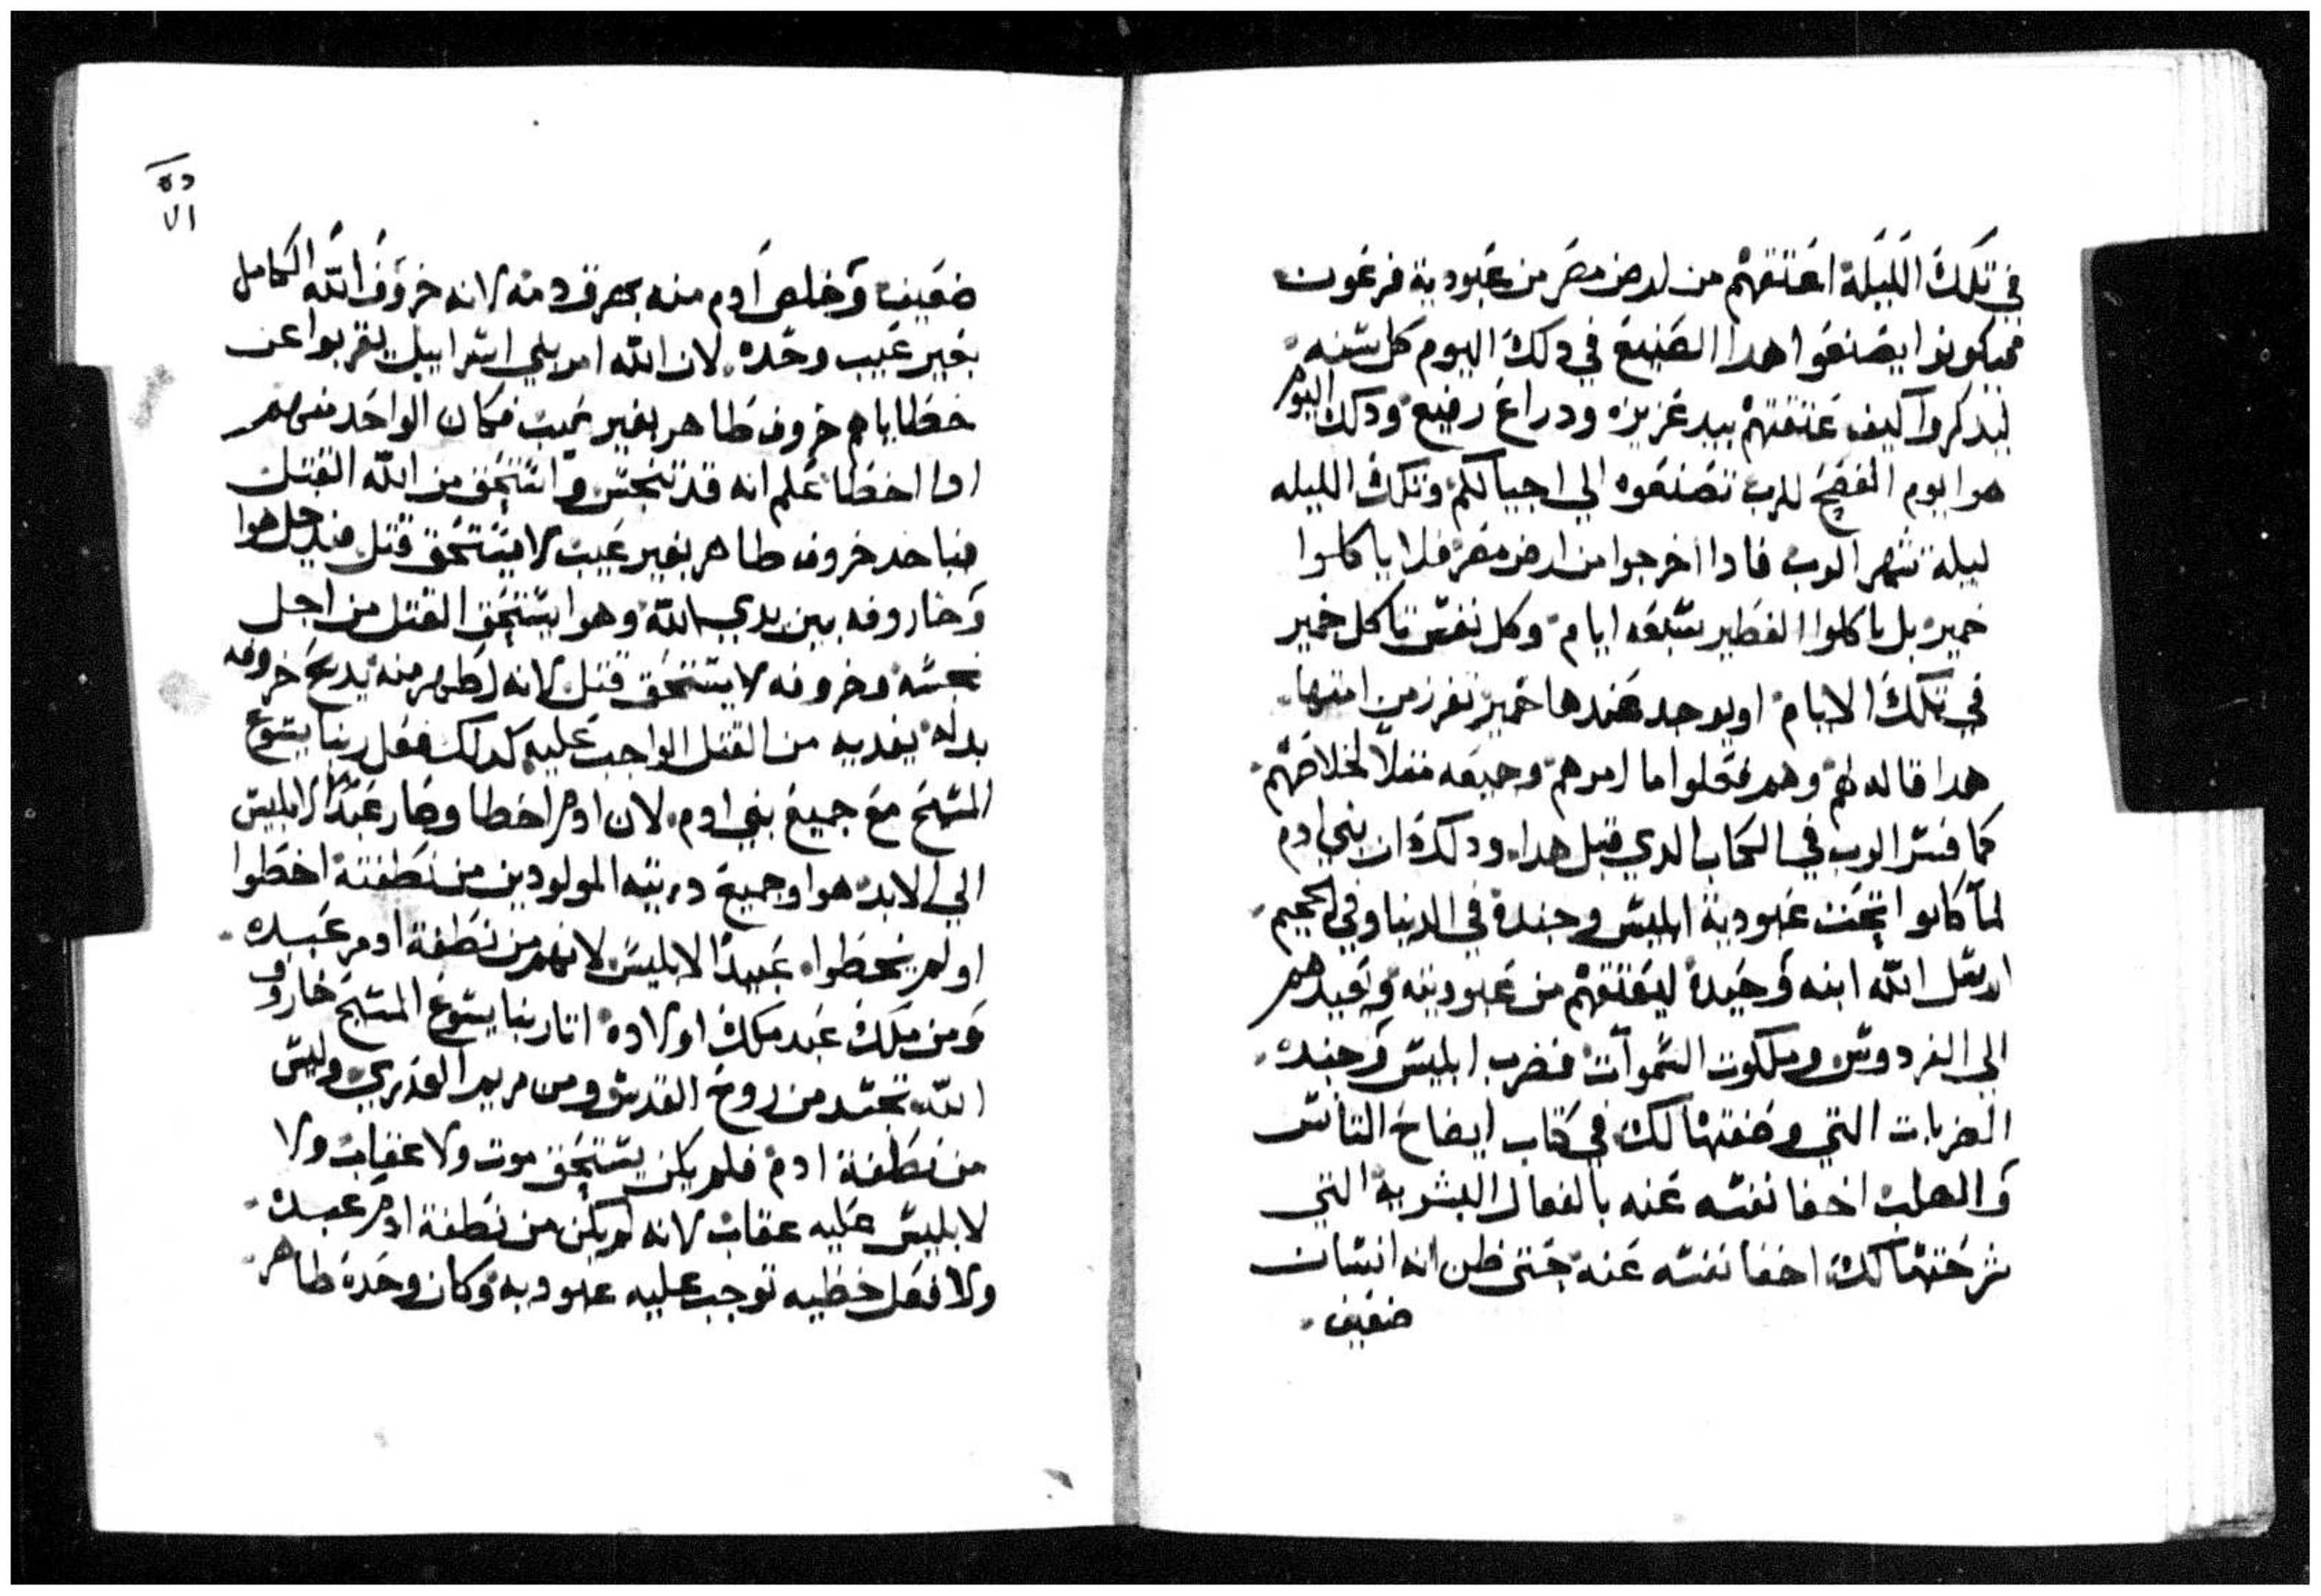 في تلك الليله اعتقهم من ارض مصر من عبودية فرعون
فيكونوا يصنعوا هدا الصنيع في دلك اليوم كل سنه
ليدكروا كيف عتقتهم بيد عزيزه ودراع رفيع ودلك اليوم
هوا يوم الفصح للرب تصنعوه الي اجيالكم وتلك الليله
ليلة تتهر الرب فادا اخرجوا من ارض مصر فلا ياكلوا
خمير بل ياكلوا الفطير سبعه ايام وكل نفس تاكل خمير
في تلك الايام او يوجد عندها خمير تفرز من امتها
هدا قاله لهم وهم فعلوا ما امرهم وجميعه مثلا لخلاصهم
كما فسر الرب في الكتاب الدي قبل هدا ودلك ان بني ادم
لما كانوا تحت عبودية ابليس وجنده في الدنيا وفي الجحيم
ارسل الله ابنه وحيده ليعتقهم من عبوديته ويعيدهم
الي الفردوس وملكوت السموات فضرب ابليس وجنده
الضربات التي وصفتها لك في كتاب ايضاح التاسن
والصلب اخفا نفسه عنه بالفعال البشرية التي
شرحتها لك اخفا نفسه عنه حتي ظن انه انسان
ضعيف
ضعيف وخلص ادم منه بهرق دمه لانه خروف الله الكامل
بغير عيب وحده لان الله امر بني اسراييل يقربوا عن
خطاياهم خروف طاهر بغير عيب فكان الواحد منهم
ادا اخطا علم انه قد تنجس واستحق من الله القتل
فياخد خروف طاهر بغير عيب لا يستحق قتل فيدخل هوا
وخاروفه بين يدي الله وهوا يستحق القتل من اجل
نجسه وخروفه لا يستحق قتل لانه اطهر منه يدبح خروفه
بداله يفديه من القتل الواجب عليه كدلك فعل ربنا يسوع
المسيح مع جميع بني ادم لان ادم اخطا وصار عبدا لابليس
الي الابد هوا وجميع دريته المولودين من نطفته اخطوا
او لم يخطوا عبيدا لابليس لانهم من نطفة ادم عبده
ومن ملك عبد ملك اولاده اتا ربنا يسوع المسيح خاروف
الله تجسد من روح القدس ومن مريم العدري وليس
من نطفة ادم فلم يكن يستحق موت ولا عقاب ولا
لابليس عليه عقاب لانه لم يكن من نطفة ادم عبده
ولا فعل خطيه توجب عليه عبوديه وكان وحده طاهر